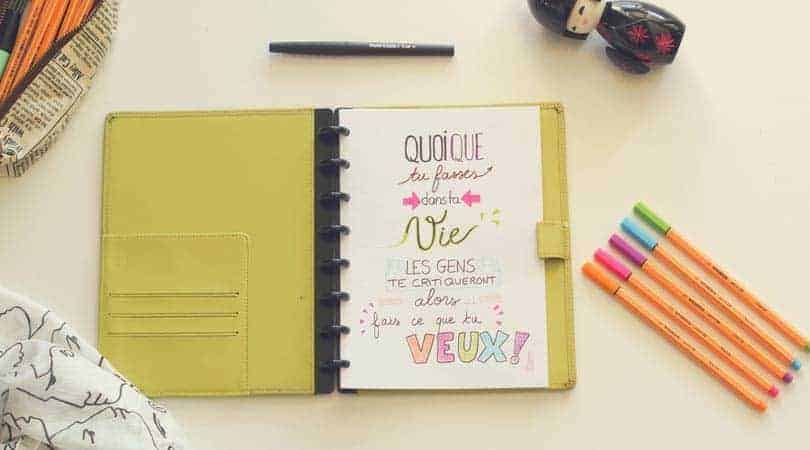 QUOIQUE
tu fasses
dans ta
Vie
LES GENS
TE CRITIQUERONT
alors
fais ce que tu
VEUX!